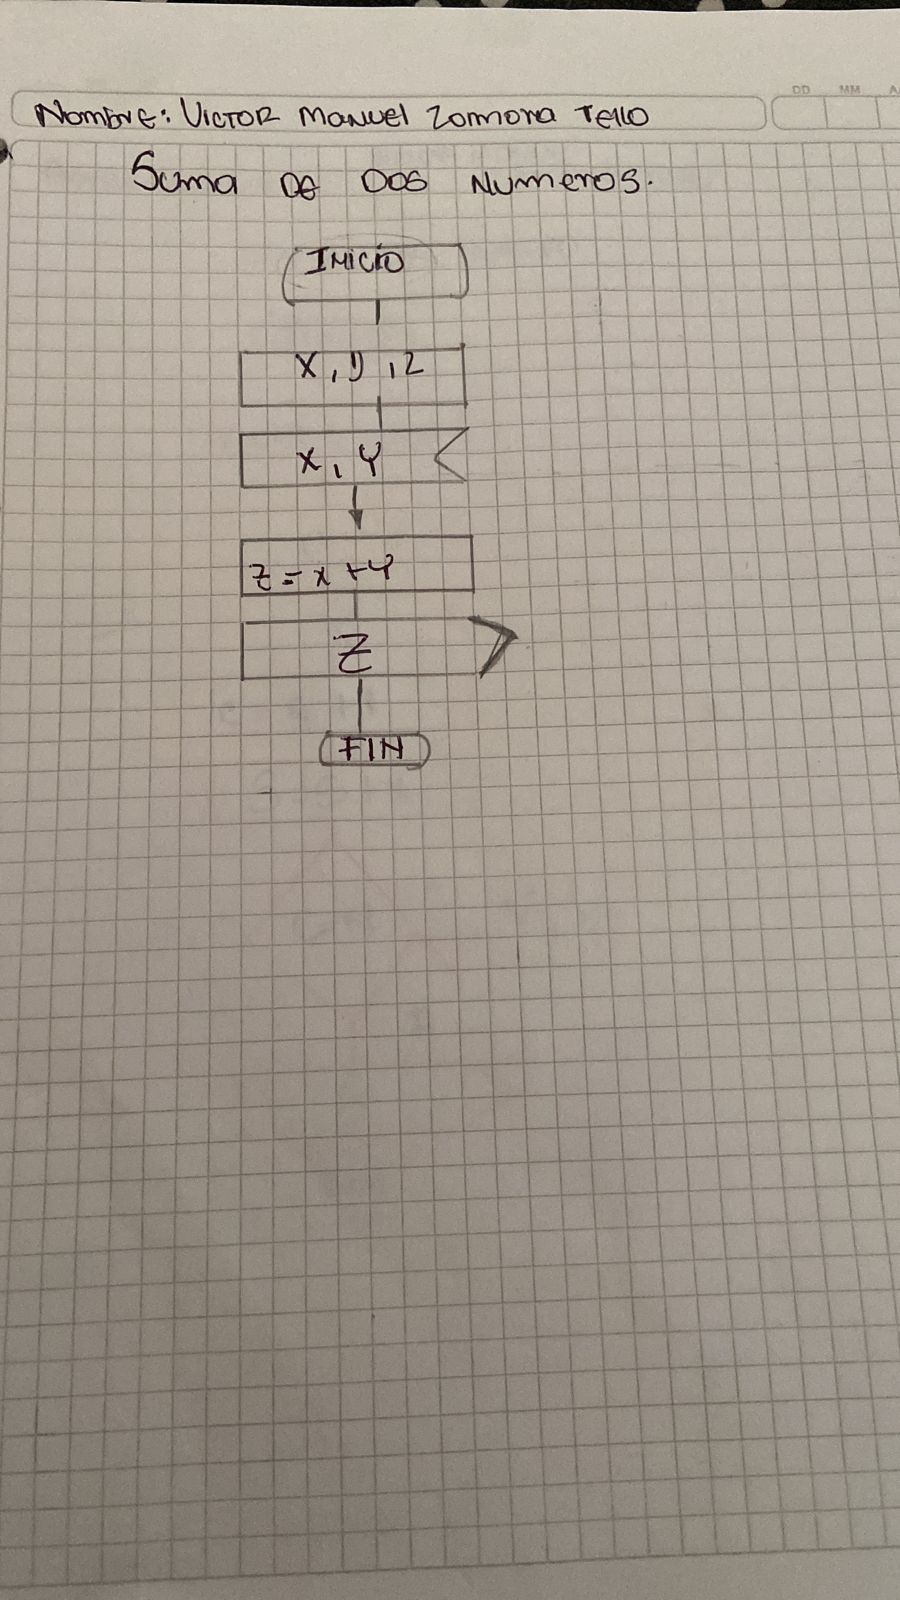 DD MM
Nombre: Victor Manuel Zamora Tello
Suma de dos numeros.
Inicio
x, y, z
x, y
z = x + y
Z
FIN